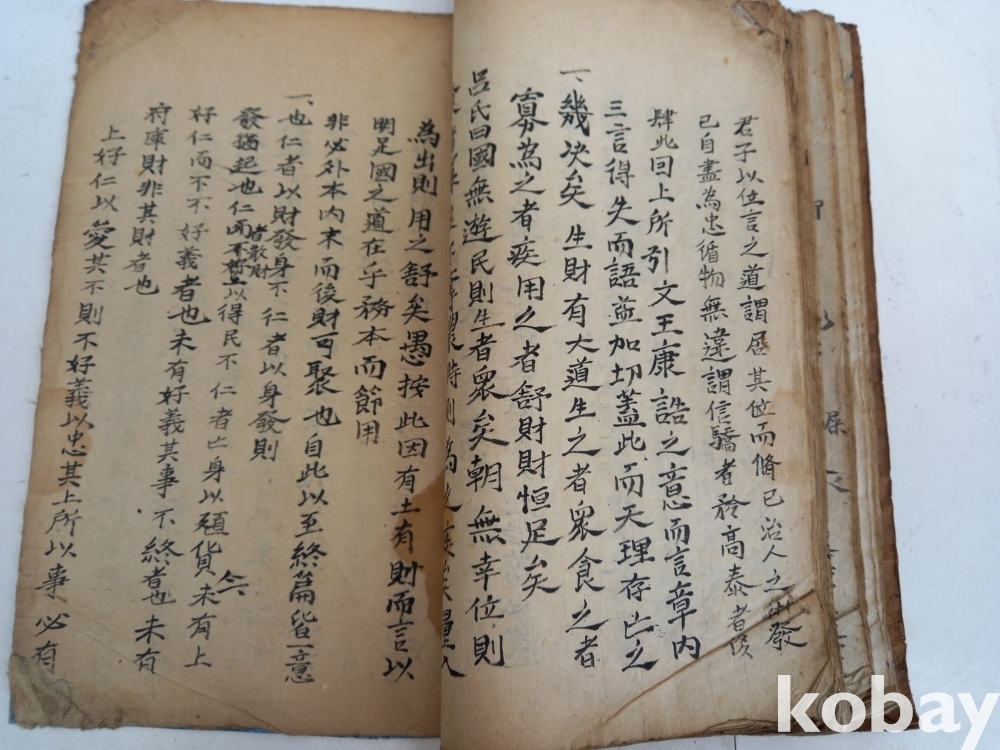 君子以位言之道謂居其位而脩己治人之術發
己自盡為忠循物無違謂信驕者矜高泰者侈
肆此回上所引文王康誥之意而言章内
三言得失而語益加切盖此而天理存亡之
一、幾决矣 生財有大道生之者眾食之者
寡為之者疾用之者舒財財恒足矣
呂氏曰國無遊民則生者眾矣朝無幸位則
時則為之疾矣量入
為出則用之舒矣愚按此因有土有則而言以
明足國之道在乎務本而節用
非必外本内末而後財可聚也自此以至終篇皆一意
一、也仁者以財發身不仁者以身發則
發猶起也仁者散財以得民不仁者亡身以殖貨未有上
好仁而不不好義者也未有好義其事不終者也未有
府庫財非其財者也
上好仁以愛其不則不好義以忠其上所以事必有
kobay